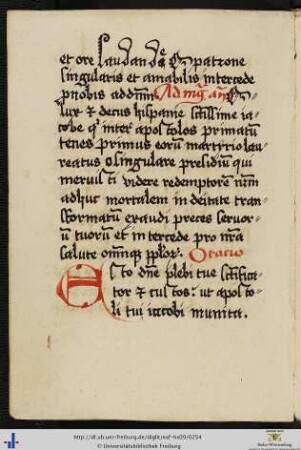 et ore laudande O patrone
singularis et amabilis intercede
p nobis ad dnm. Ad mg. an. O
lux et decus hispanie sctissime ia-
cobe q inter apostolos primatu
tenes primus eoru martirio lau-
reatus o singulare presidiu qui
meruisti videre redemptore nrm
adhuc mortalem in deitate tran-
sformatum exaudi preces seruor-
u tuoru et intercede pro nra
salute omniq pplor. Oracio
Esto dne plebi tue sctifica-
tor et custos. ut aposto-
li tui iacobi munita.
http://dl.ub.uni-freiburg.de/diglit/naf-hs09/0204
© Universitätsbibliothek Freiburg
Baden-Württemberg